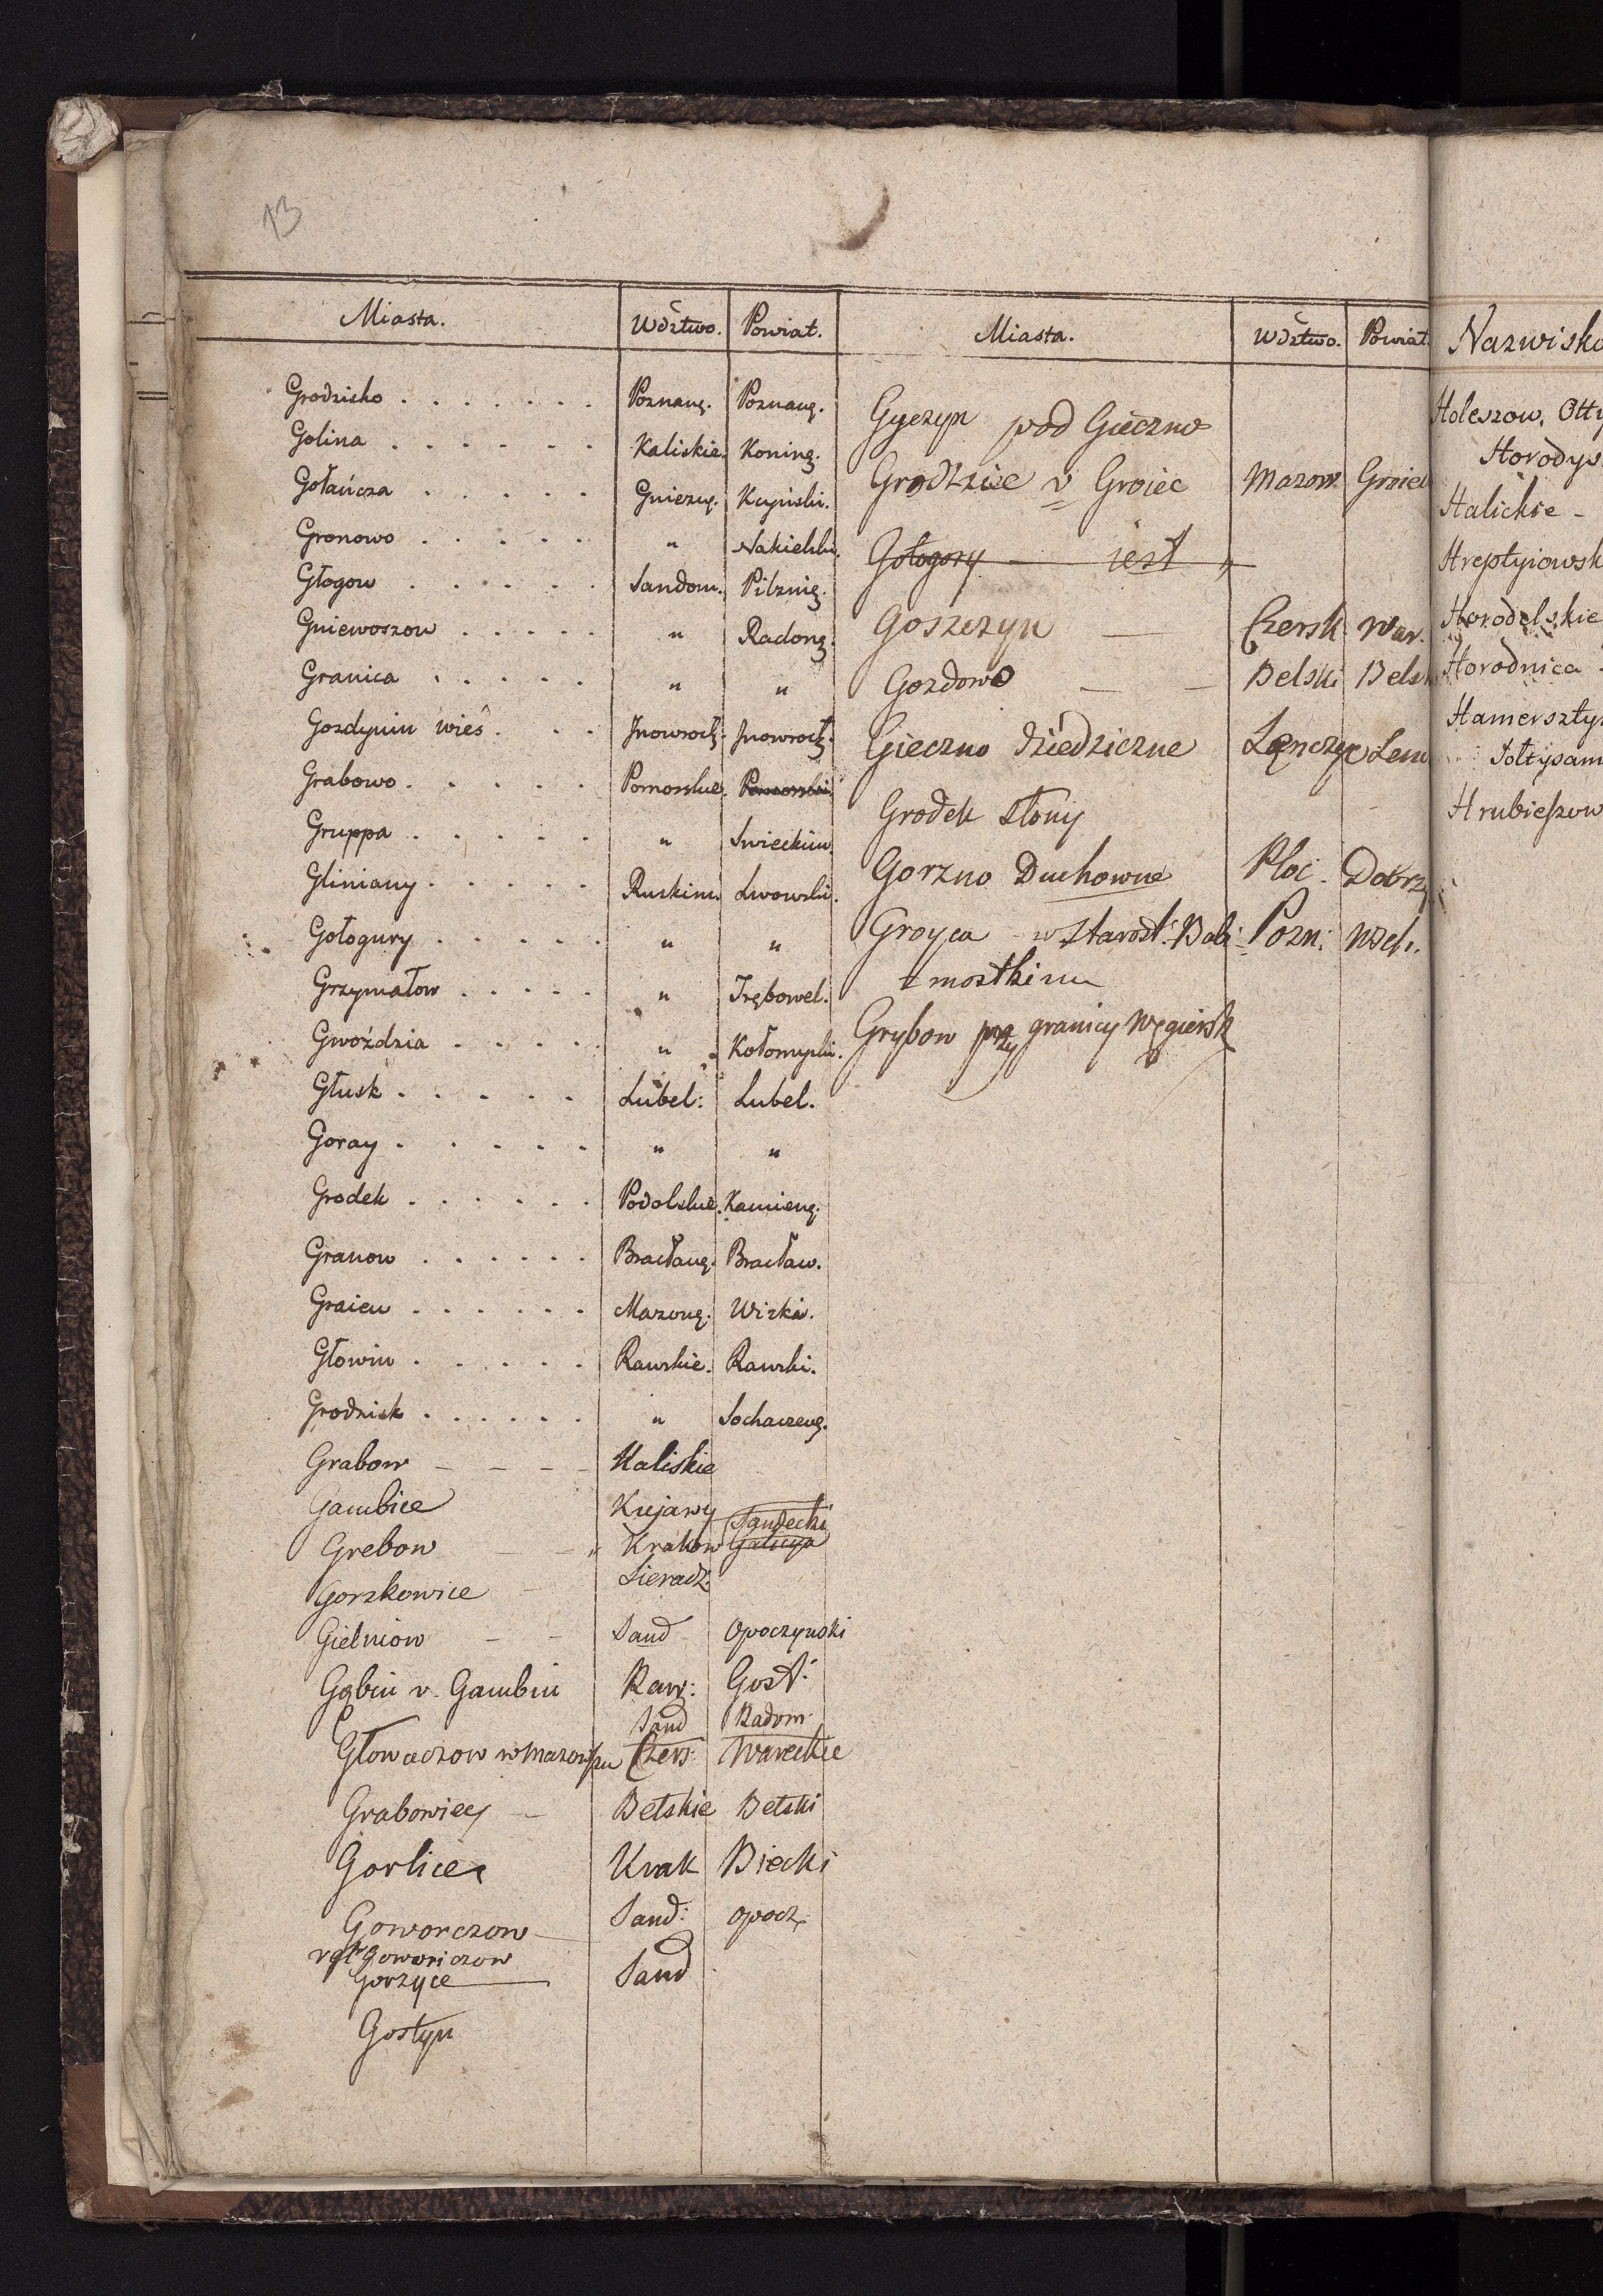 13
Miasta. Wdztwo. Powiat.
Grodzisko . . . . . . . Poznańs. Poznańs.
Golina . . . . . . Kaliskie. Konińs.
Gołańcza . . . . . Gniezns. Kcyński.
Gronowo . . . . . " Nakielski.
Głogow . . . . . Sandom. Pilznińs.
Gniewoszow . . . . . " Radoms.
Granica . . . . . " "
Gozdynin wieś . . . Jnowrocł. Jnowrocł.
Grabowo . . . . . Pomorskie. Pomorski.
Gruppa . . . . . " Swieckim.
Gliniany . . . . . Ruskim Lwowski.
Gołogury . . . . . " "
Grzymałow . . . . . " Trębowel.
Gwoździa . . . . . " Kołomyski.
Głusk . . . . . Lubel: Lubel.
Goray . . . . . " "
Grodek . . . . . . Podolskie. Kamiens.
Granow . . . . . . Bracławs. Bracław.
Graiew . . . . . . Mazows. Wizki.
Głowin . . . . . Rawskie. Rawski.
Grodzisk . . . . . . " Sochaczews.
Grabow - - - - Kaliskie
Gambice Kujawy
Grebow - - " Krakow Sandecki Galicya
Gorzkowice - Sieradz
Gielniow - - Sand Opoczynski
Gąbin v. Gambin Raw: Gost:
Sand Radom
Głowaczow w Mazowszu Czers: Wareckie
Grabowiec - Bełskie Bełski
Gorlice Krak Biecki
Goworczow Sand: opocz.
Gowoniczow
Gorzyce Sand
Gostyn
Miasta. Wdztwo. Powiat.
Gyczyn pod Gieczno
Grodzice v Groiec Mazow. Groiec
Gołogory iest
Goszczyn - Czersk War.
Gozdowo - - Belski Bels
Gieczno dziedziczne Lęnczyc Lenc
Grodek słony
Gorzno Duchowne Ploc. Dobrz.
Groyca w Starost: Babi Pozn: Wsch.
mostkim
Grybow przy granicy Węgiersk
Nazwisko
Holeszow, Otty
Horodys
Halickie -
Hreptyiowsk
Horodelskie
Horodnica
Hamersztyn
Sołtysam
Hrubieszow